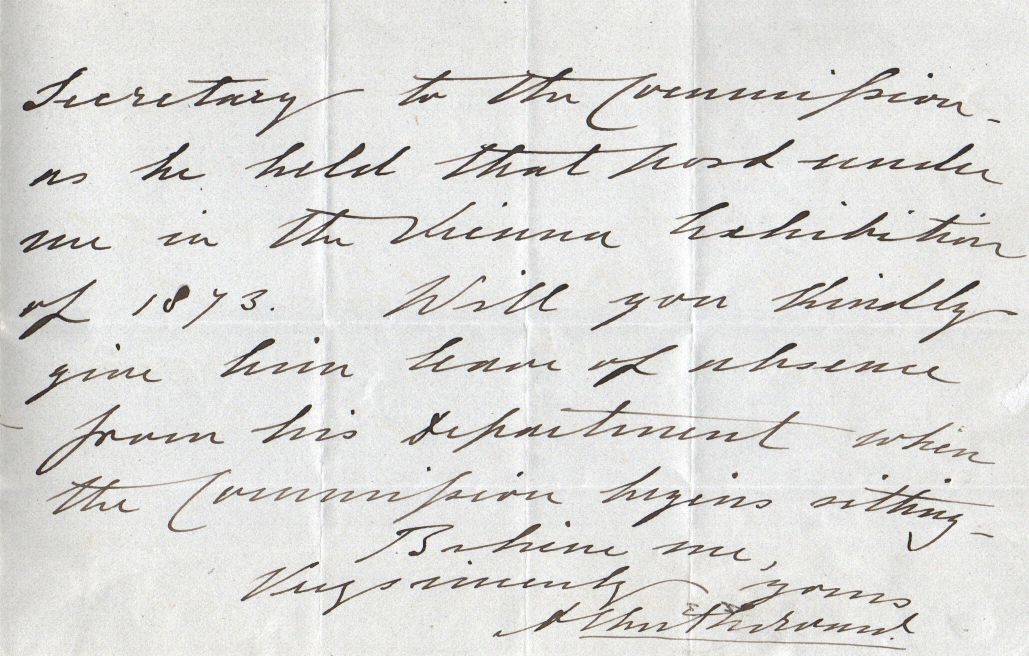 Secretary to the Commission -
as he held that post under
me in the Vienna Exhibition
of 1873. Will you kindly
give him leave of absence
from his department when
the Commission begins sitting -
Believe me,
Very sincerely yours